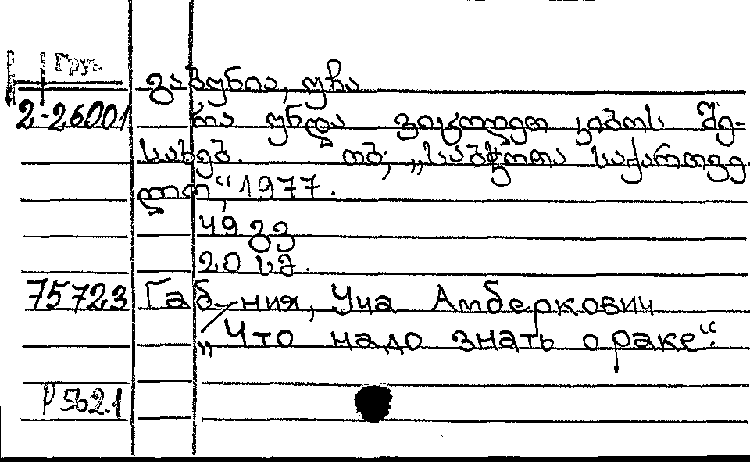 Груз
გაბუნია, უჩა
2-26001 რა უნდა ვიცოდეთ კიბოს შე-
სახებ. თბ., „საბჭოთა საქართვე-
ლო“, 1977.
49 გვ
20 სმ.
75723 Габ-ния, Уча Амберкович
„Что надо знать о раке“.
Р562.1